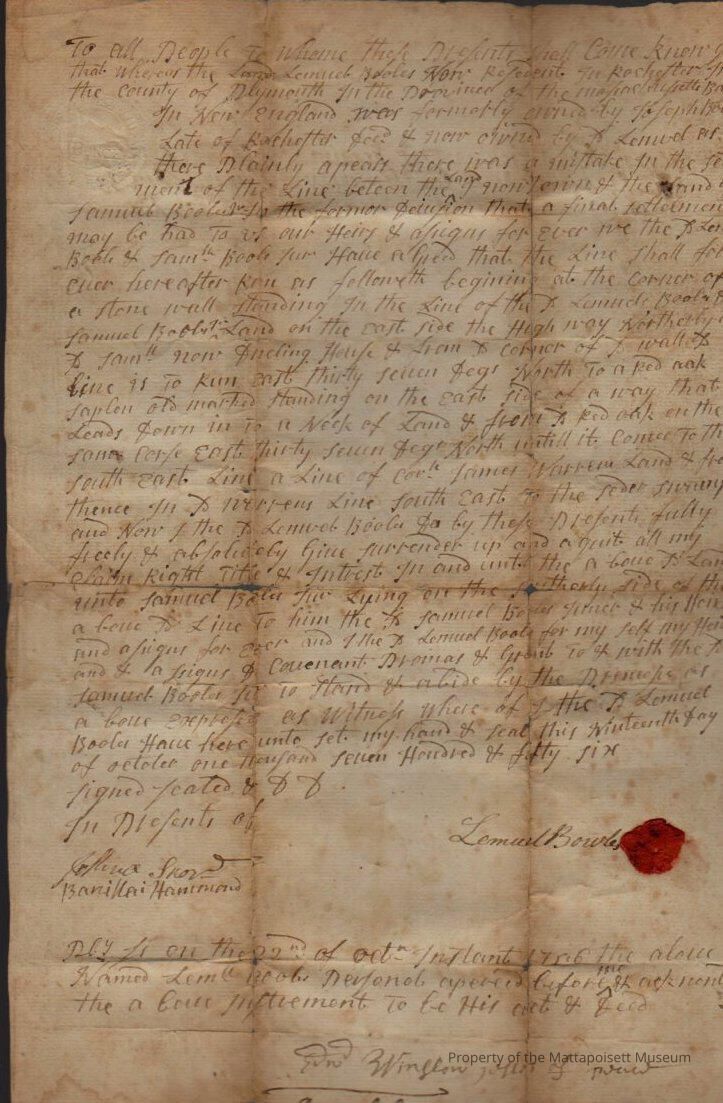 To all People To whome these Presents shall Come know
that whereas the Land Lemuel Booles Now Resedent In Rochester In
the County of Plymouth In the Province of the
In New England was formerly owned by Joseph
Late of Rochester & now owned by Lemuel as
there Plainly apears there was a mistake In the
ment of the Line beteen the Land I now own & the Land
Samuel Booles In the former Devision that a final settlemen
may be had To us our Heirs & asigns for Ever we the
Boole & Samll Boole Jur Have agreed that the Line shall for
ever hereafter Run as followeth begining at the Corner of
a stone wall standing In the Line of the Lemuel Booles
Samuel Booles Land on the East side the High way Northerly
Samll now House & from Corner of wall
Line is To Run East thirty seven Degs North To a Red oak
saplen old marked standing on the East side of a way that
Leads Down in To a Neck of Land & from Red oak on the
same Corse East thirty seven Degs North untill it Comes To th
south East Line a Line of James Warren Land & fro
thence In Line south East To the seder
and Now I the Lemuel Boole Do by these Presents fully
freely & absolutely Give surrender up and aquit all my
Right Title & Intrest In and unto the a bove Lan
unto Samuel Booles Jur Lying on the side of th
a bove Line To him the Samuel & his Heir
and asigns for Ever and I the Lemuel Boole for my self my Hei
and & asigns Covenant Promas & Grant To & with the
Samuel Booles Jur To stand & abide by the Premise as
a bove Expresed as Witness where of I the Lemuel
Booles Have here unto set my hand & seal this Ninteenth Day
of october one thousand seven Hundred & fifty six
signed sealed &
In Presents of
Lemuel Bowles
Hammond
on the 22nd of Instant 1756 the above
Named Lemll Booles Personaly apeered before me & acknow
the a bove Instrement To be His act & Deed
Winslow
Property of the Mattapoisett Museum